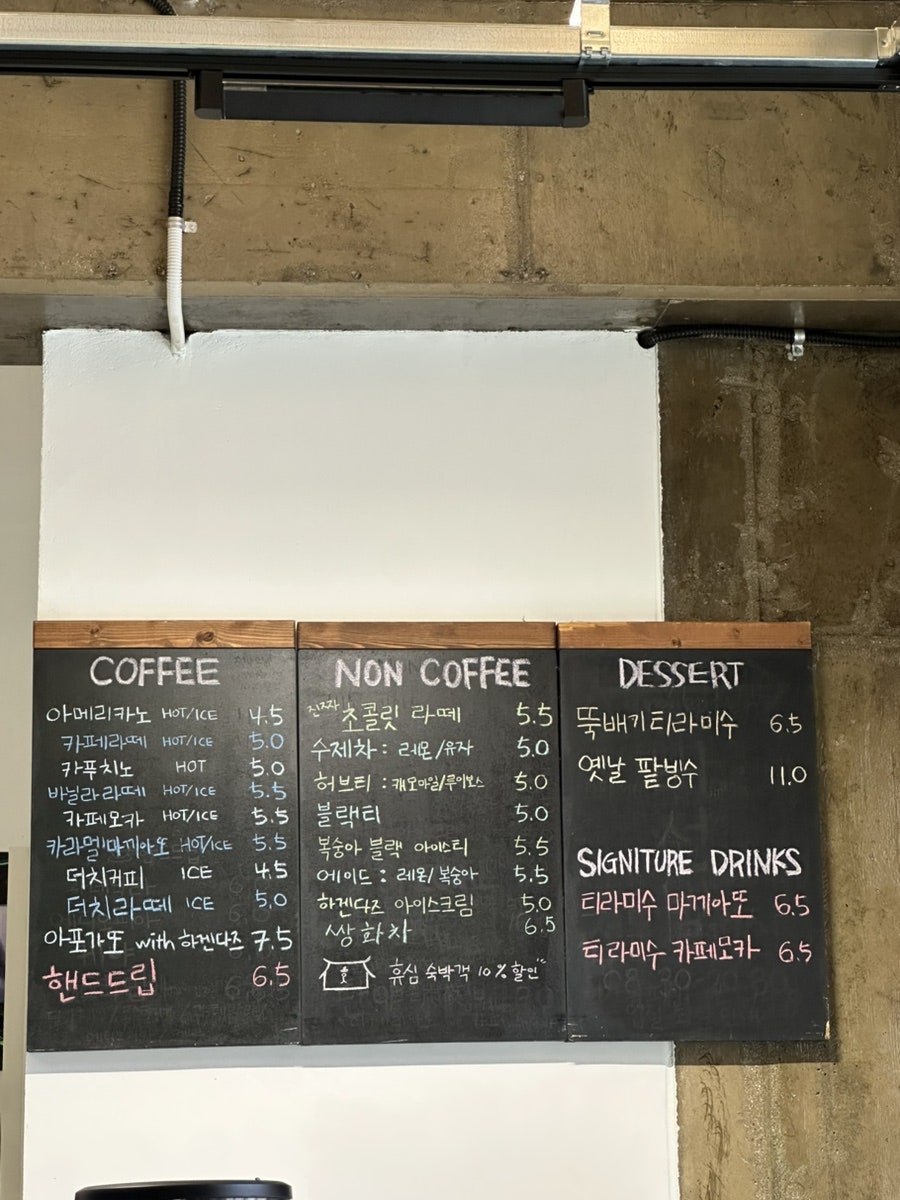 COFFEE
아메리카노 HOT/ICE 4.5
카페라떼 HOT/ICE 5.0
카푸치노 HOT 5.0
바닐라라떼 HOT/ICE 5.5
카페모카 HOT/ICE 5.5
카라멜마끼아또 HOT/ICE 5.5
더치커피 ICE 4.5
더치라떼 ICE 5.0
아포가또 with 하겐다즈 7.5
핸드드립 6.5
NON COFFEE
진짜 초콜릿 라떼 5.5
수제차 : 레몬/유자 5.0
허브티 : 캐모마일/루이보스 5.0
블랙티 5.0
복숭아 블랙 아이스티 5.5
에이드 : 레몬/복숭아 5.5
하겐다즈 아이스크림 5.0
쌍화차 6.5
휴심 숙박객 10% 할인
DESSERT
뚝배기티라미수 6.5
옛날 팥빙수 11.0
SIGNITURE DRINKS
티라미수 마끼아또 6.5
티라미수 카페모카 6.5